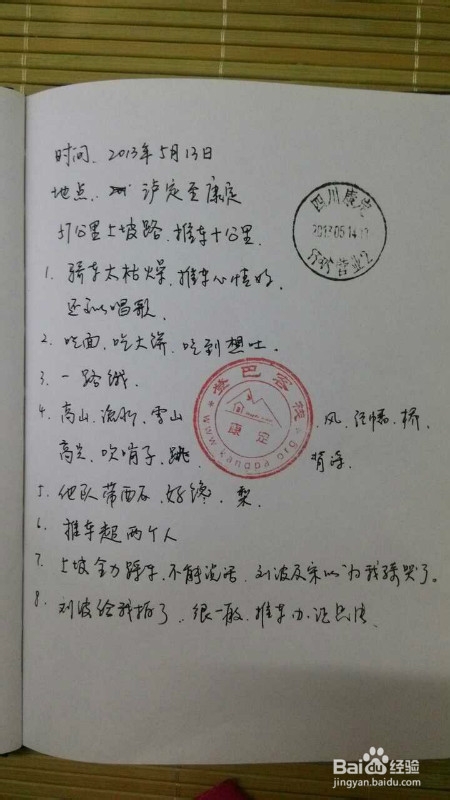 时间、2013年5月13日
地点、泸定至康定
57公里上坡路、推车十公里.
1. 骑车太枯燥、推车心情好、
还可以唱歌.
2. 吃面、吃大饼、吃到想吐.
3. 一路饿.
4. 高山、流水、雪山 风、经幡、桥、
高兴、吹哨子、跳
5. 他队带西瓜、好馋、梨
6. 推车超两个人
7. 上坡全力骑车、不能说话、刘波反来以为我骑哭了。
8. 刘波给我拍了、很一般、推车
四川康定
2013.05.14
营业2
登巴客栈
康定
Baidu经验
jingyan.baidu.com